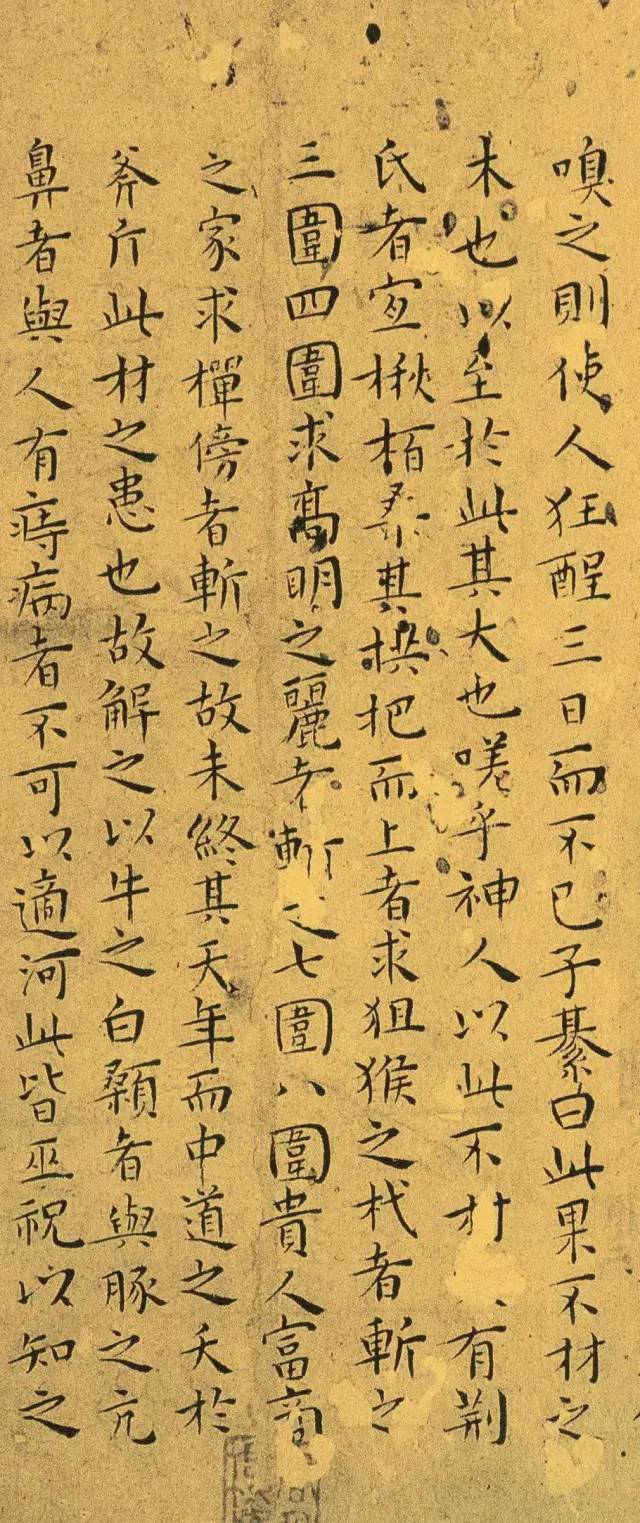 嗅之則使人狂酲三日而不已子綦曰此果不材之
木也以至於此其大也嗟乎神人以此不材有荆
氏者宜楸栢桒其拱把而上者求狙猴之杙者斬之
三圍四圍求高明之麗者斬之七圍八圍貴人富商
之家求樿傍者斬之故未終其天年而中道之夭於
斧斤此材之患也故解之以牛之白顙者與豚之亢
鼻者與人有痔病者不可以適河此皆巫祝以知之